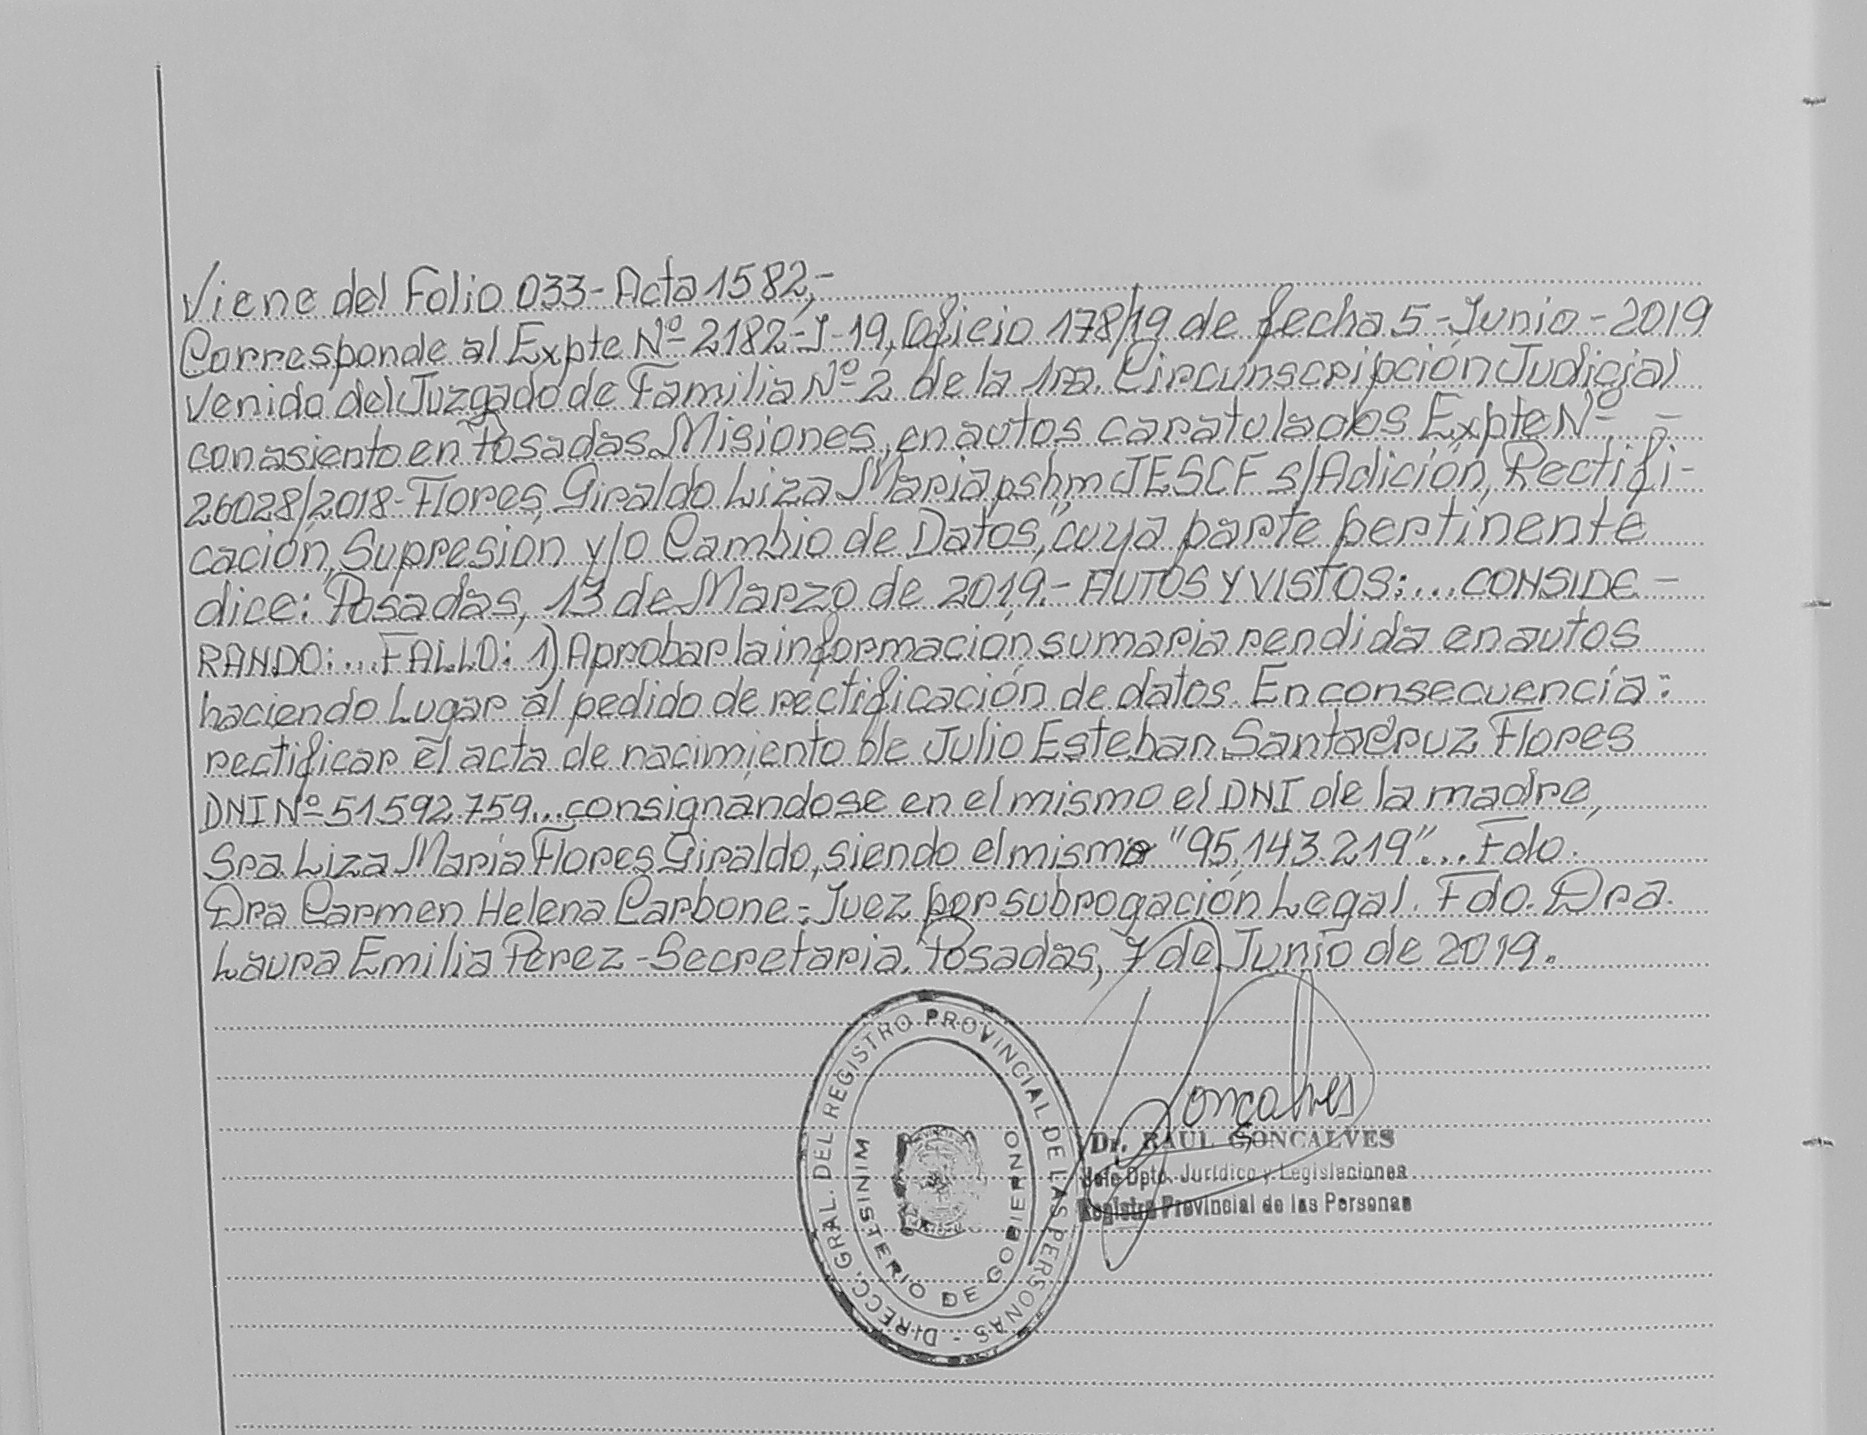 Viene del Folio 033-Acta 1582,-
Corresponde al Expte Nº 2182-J-19, Oficio 178/19 de fecha 5-Junio-2019
venido del Juzgado de Familia Nº 2 de la 1ra. Circunscripción Judicial
con asiento en Posadas Misiones, en autos caratulados Expte Nº-
26028/2018-Flores Giraldo Liza Maria pshm JESCF s/Adición, Rectifi-
cación, Supresión y/o Cambio de Datos", cuya parte pertinente
dice: Posadas, 13 de Marzo de 2019.- AUTOS Y VISTOS:...CONSIDE-
RANDO:...FALLO: 1) Aprobar la información sumaria rendida en autos
haciendo Lugar al pedido de rectificación de datos. En consecuencia:
rectificar el acta de nacimiento de Julio Esteban SantaCruz Flores
DNI Nº 51.592.759...consignandose en el mismo el DNI de la madre,
Sra. Liza María Flores Giraldo, siendo el mismo "95.143.219"... Fdo.
Dra Carmen Helena Carbone-Juez por subrogación Legal. Fdo. Dra.
Laura Emilia Perez-Secretaria. Posadas, 7 de Junio de 2019.
DIRECC. GRAL. DEL REGISTRO PROVINCIAL DE LAS PERSONAS -
MINISTERIO DE GOBIERNO
Gonçalves
Dr. RAUL GONCALVES
Jefe Dpto. Jurídico y Legislaciones
Registro Provincial de las Personas